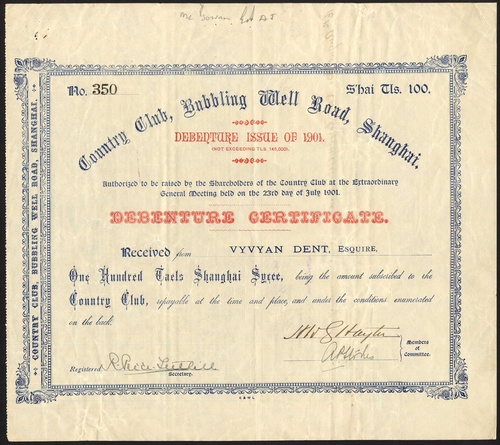 No. 350
S'hai Tls. 100.
Country Club, Bubbling Well Road, Shanghai.
DEBENTURE ISSUE OF 1901.
(NOT EXCEEDING TLS. 145,000)
Authorized to be raised by the Shareholders of the Country Club at the Extraordinary
General Meeting held on the 23rd day of July 1901.
DEBENTURE CERTIFICATE.
Received from VYVYAN DENT, ESQUIRE,
One Hundred Taels Shanghai Sycee, being the amount subscribed to the
Country Club, repayable at the time and place, and under the conditions enumerated
on the back.
Members
of
Committee.
Registered
Secretary.
COUNTRY CLUB, BUBBLING WELL ROAD, SHANGHAI.